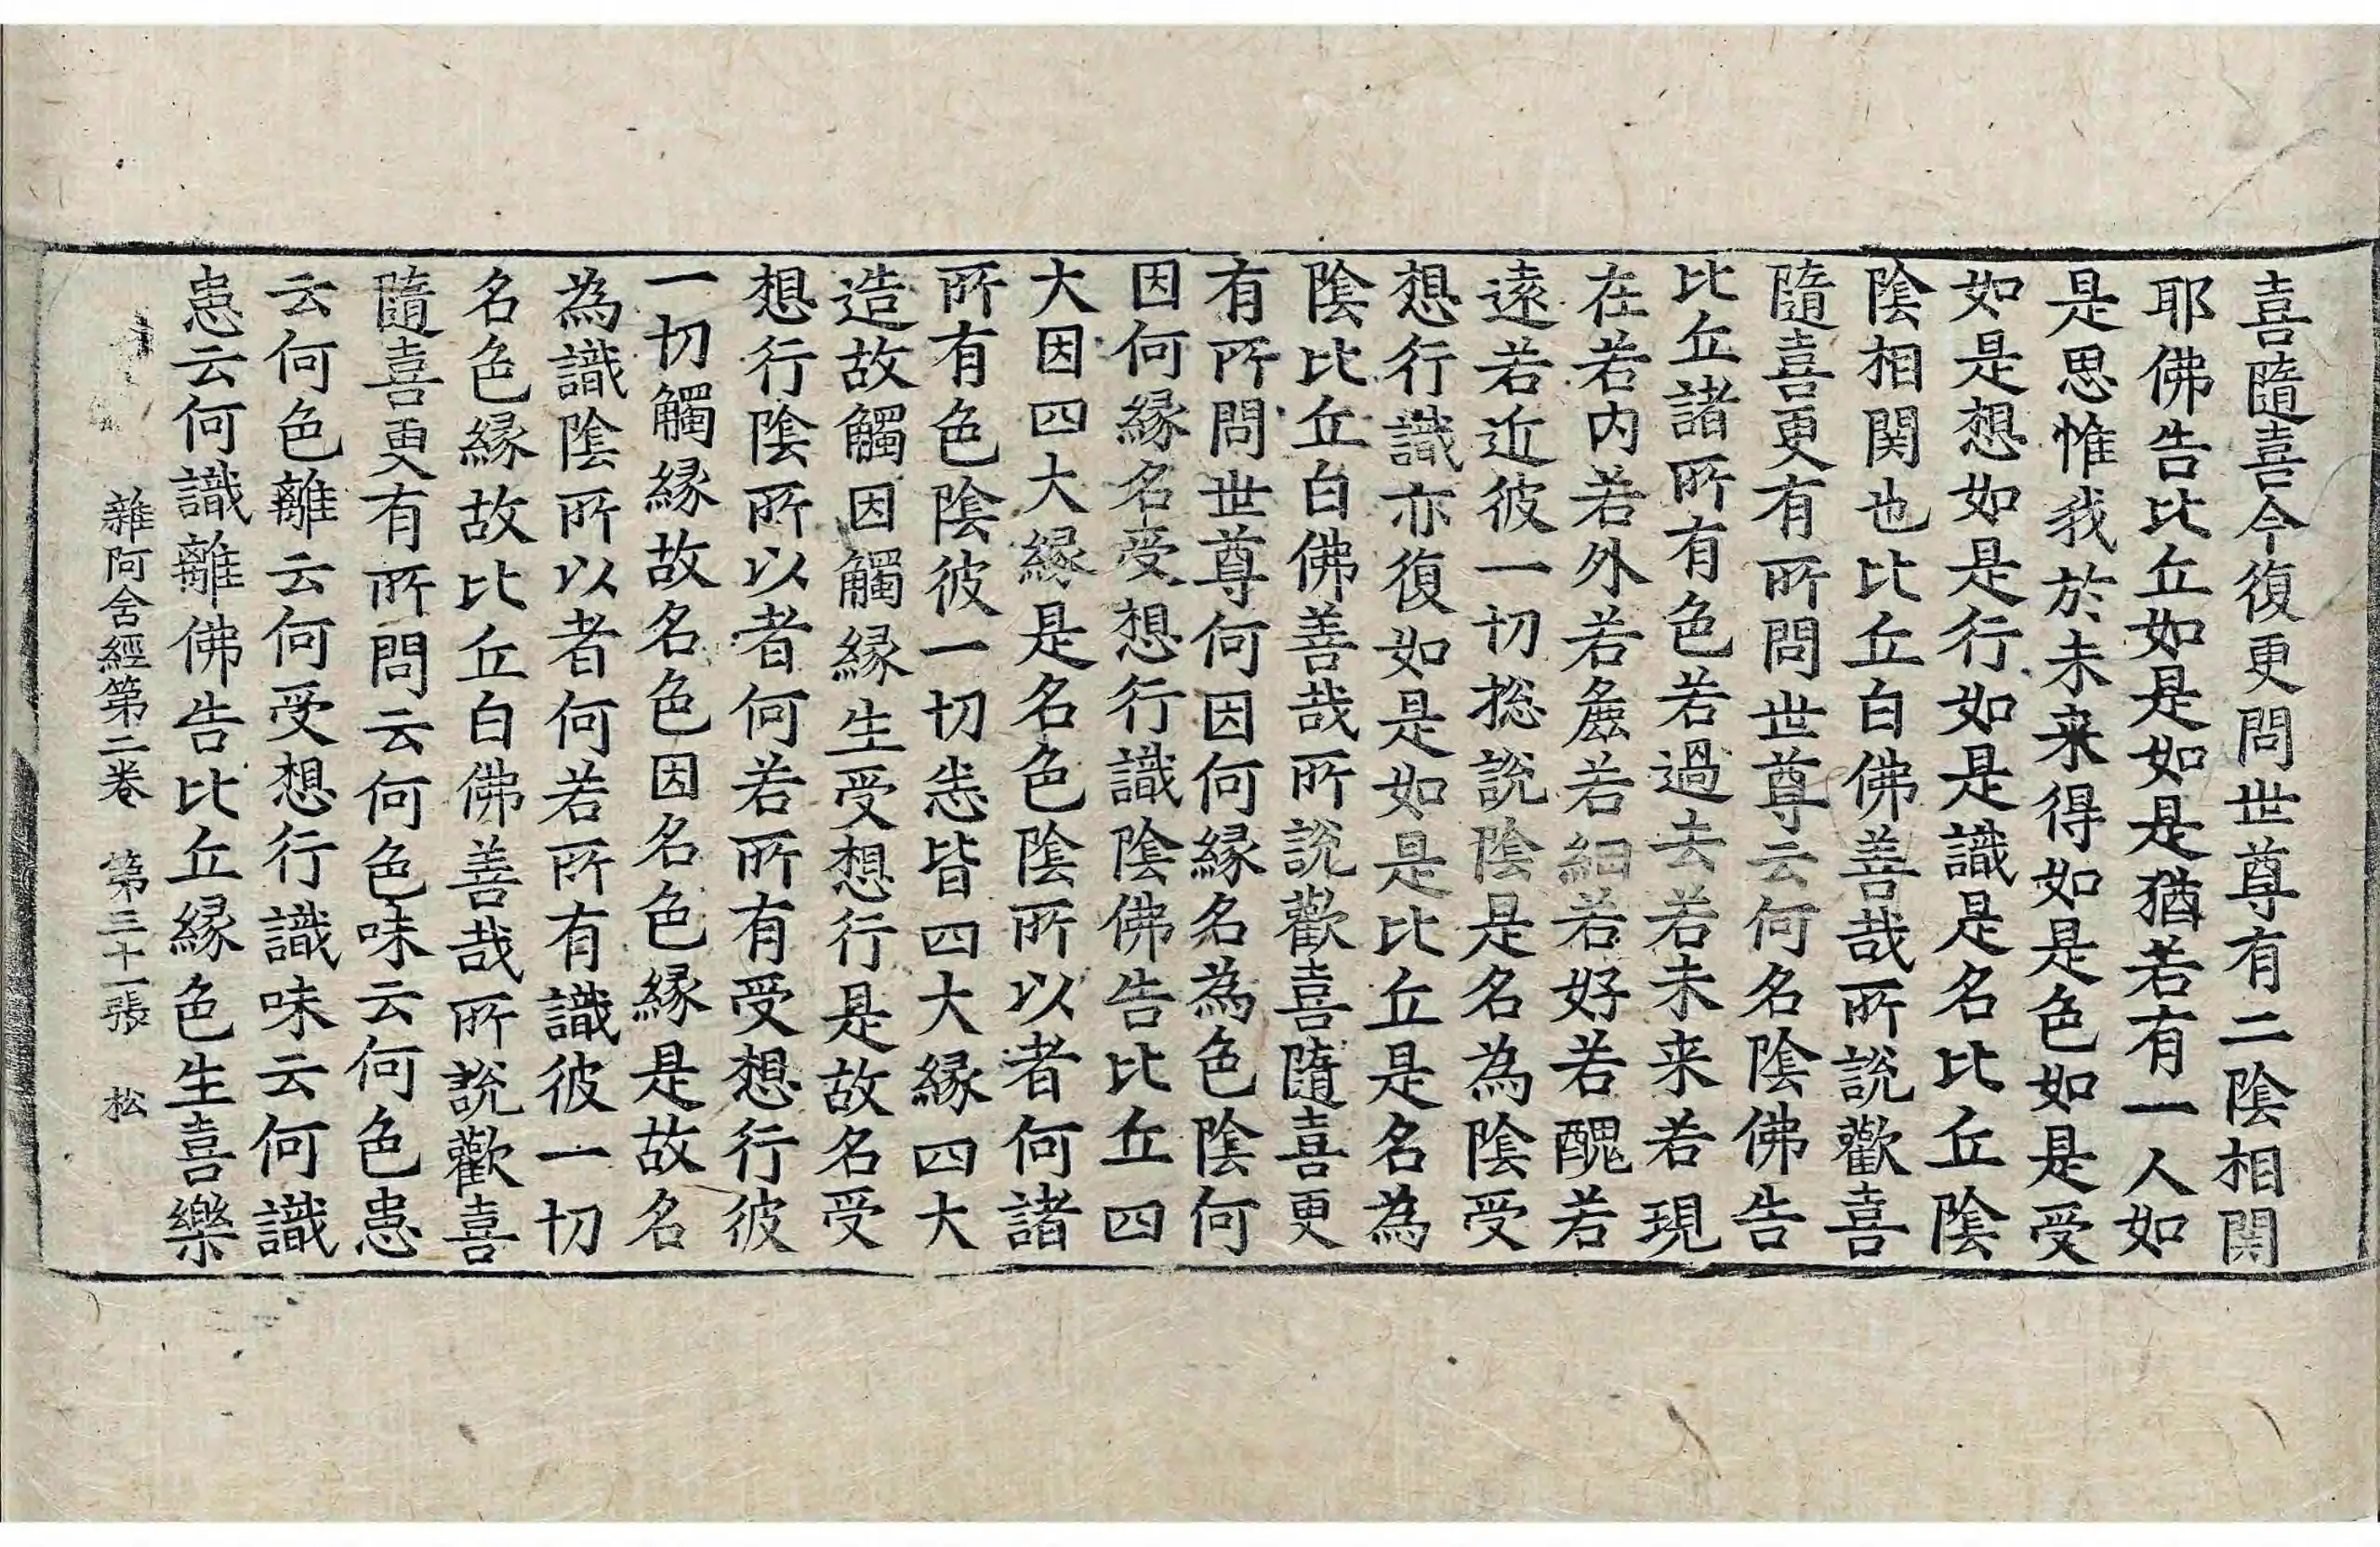 喜隨喜今復更問世尊有二陰相関
耶佛告比丘如是如是猶若有一人如
是思惟我於未来得如是色如是受
如是想如是行如是識是名比丘陰
陰相関也比丘白佛善哉所說歡喜
隨喜更有所問世尊云何名陰佛告
比丘諸所有色若過去若未来若現
在若内若外若麁若細若好若醜若
遠若近彼一切捴說陰是名為陰受
想行識亦復如是如是比丘是名為
陰比丘白佛善哉所說歡喜隨喜更
有所問世尊何因何縁名為色陰何
因何縁名受想行識陰佛告比丘四
大因四大縁是名色陰所以者何諸
所有色陰彼一切悉皆四大縁四大
造故觸因觸縁生受想行是故名受
想行陰所以者何若所有受想行彼
一切觸縁故名色因名色縁是故名
為識陰所以者何若所有識彼一切
名色縁故比丘白佛善哉所說歡喜
隨喜更有所問云何色味云何色患
云何色離云何受想行識味云何識
患云何識離佛告比丘縁色生喜樂
雜阿含經第二卷　第三十一張　松